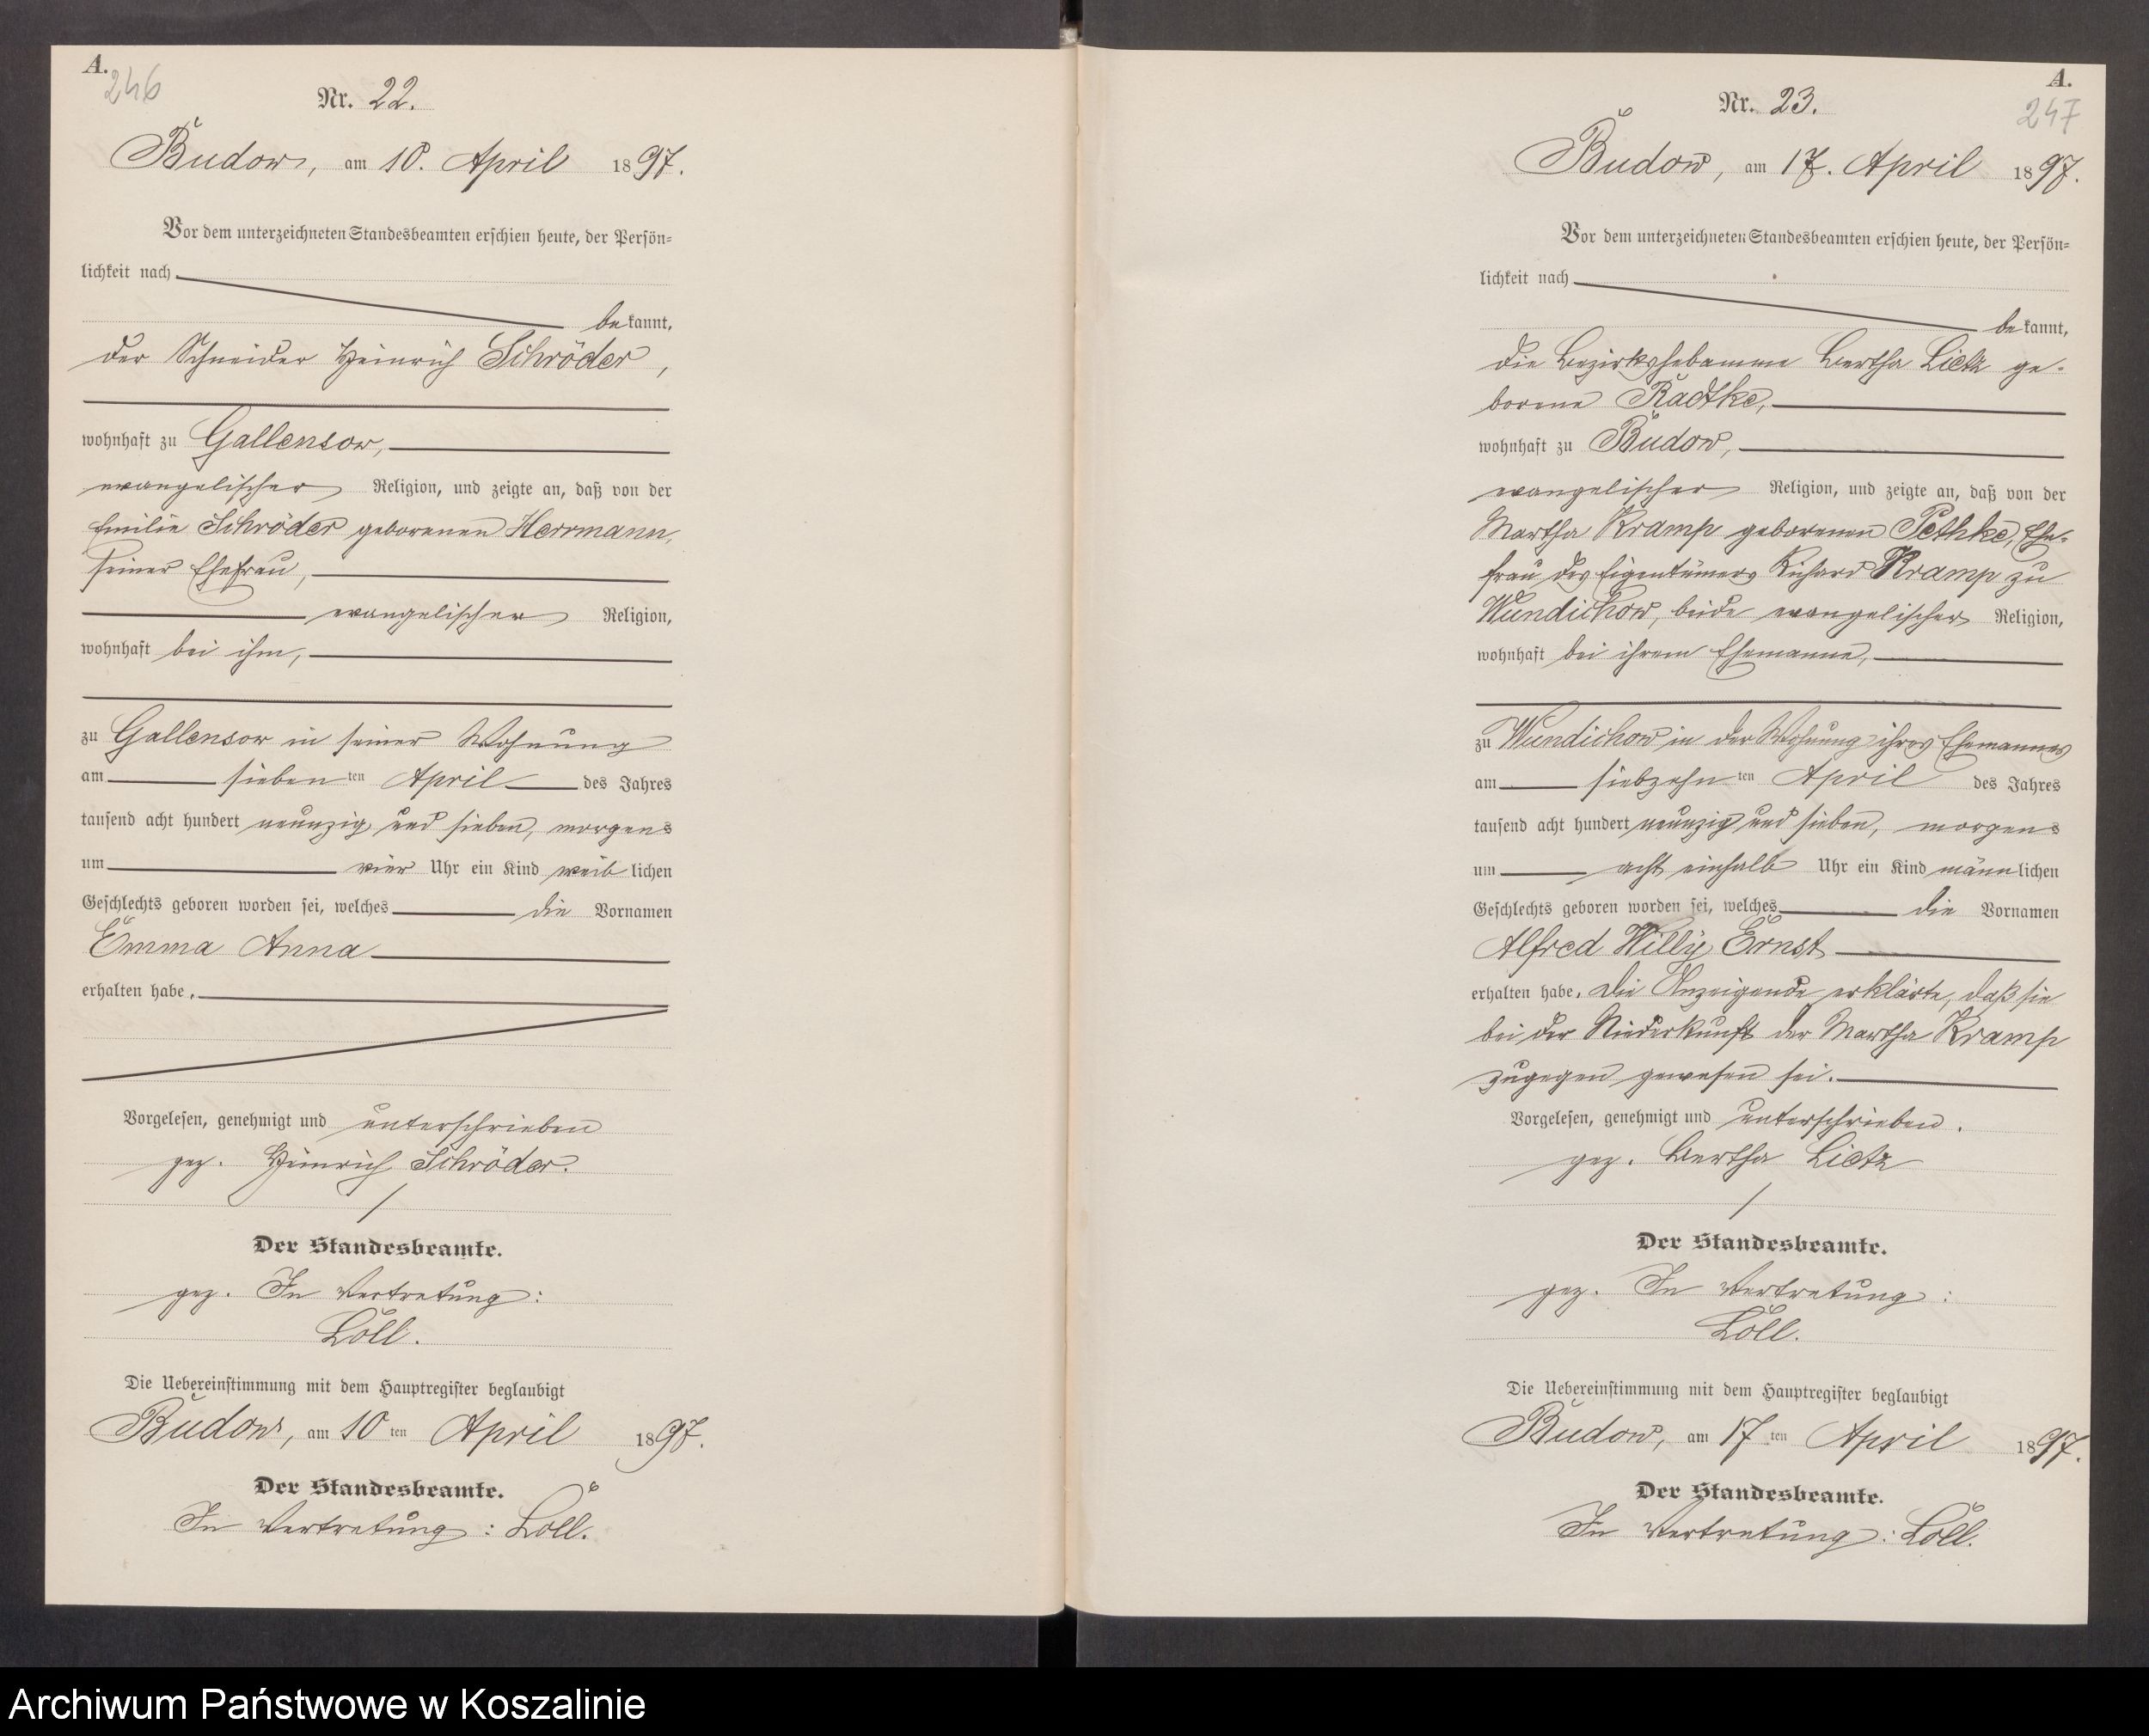 A.
246
Nr. 22.
Budow, am 10. April 1897.
Vor dem unterzeichneten Standesbeamten erschien heute, der Persön=
lichkeit nach
bekannt,
der Schneider Heinrich Schröder,
wohnhaft zu Gallensow,
evangelischer Religion, und zeigte an, daß von der
Emilie Schröder geborenen Herrmann,
seiner Ehefrau,
evangelischer Religion,
wohnhaft bei ihm,
zu Gallensow in seiner Wohnung
am siebenten April des Jahres
tausend acht hundert neunzig und sieben, morgens
um vier Uhr ein Kind weiblichen
Geschlechts geboren worden sei, welches die Vornamen
Emma Anna
erhalten habe,
Vorgelesen, genehmigt und unterschrieben
gez. Heinrich Schröder.
Der Standesbeamte.
gez. In Vertretung:
Löll.
Die Uebereinstimmung mit dem Hauptregister beglaubigt
Budow, am 10ten April 1897.
Der Standesbeamte.
In Vertretung: Löll.
A.
247
Nr. 23.
Budow, am 17. April 1897.
Vor dem unterzeichneten Standesbeamten erschien heute, der Persön=
lichkeit nach
bekannt,
die Bezirkshebamme Bertha Lietz ge-
borene Radtke,
wohnhaft zu Budow,
evangelischer Religion, und zeigte an, daß von der
Martha Kramp geborenen Pethke, Ehe-
frau des Eigentümers Richard Kramp zu
Wundichow, beide evangelischer Religion,
wohnhaft bei ihrem Ehemanne,
zu Wundichow in der Wohnung ihres Ehemannes
am siebzehnten April des Jahres
tausend acht hundert neunzig und sieben, morgens
um acht einhalb Uhr ein Kind männlichen
Geschlechts geboren worden sei, welches die Vornamen
Alfred Willy Ernst
erhalten habe. Die Anzeigende erklärte, daß sie
bei der Niederkunft der Martha Kramp
zugegen gewesen sei.
Vorgelesen, genehmigt und unterschrieben.
gez. Bertha Lietz
Der Standesbeamte.
gez. In Vertretung:
Löll.
Die Uebereinstimmung mit dem Hauptregister beglaubigt
Budow, am 17ten April 1897.
Der Standesbeamte.
In Vertretung: Löll.
Archiwum Państwowe w Koszalinie